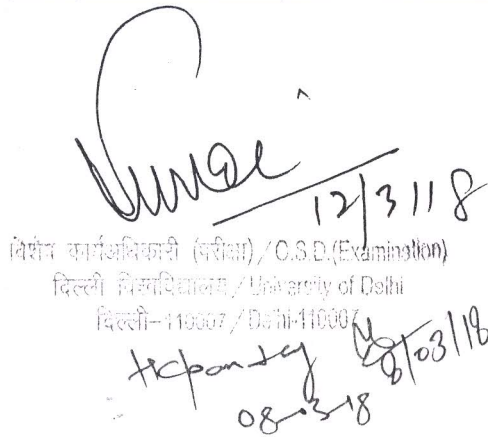 12/3/18
विशेष कार्यअधिकारी (परीक्षा)/O.S.D.(Examination)
दिल्ली विश्वविद्यालय/University of Delhi
दिल्ली-110007/Delhi-110007
8/03/18
08-03-18